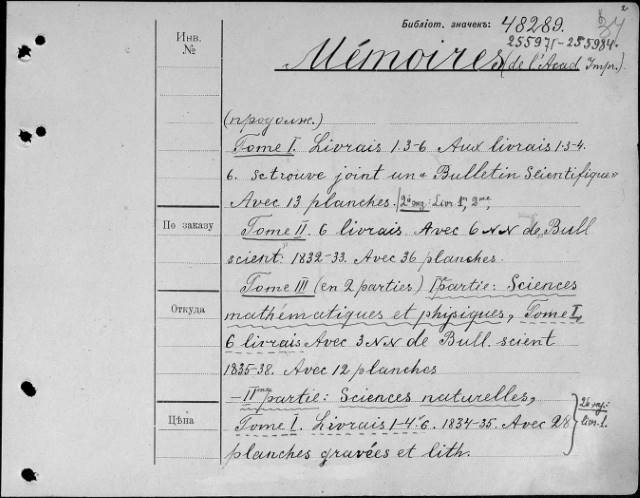 Библіот. значекъ: 48289.
255971-255984.
Инв.
№
Mémoires (de l'Acad Impr.)
(продолж.)
Tome I. Livrais 1.3-6 Aux livrais 1.3-4.
6. se trouve joint un "Bulletin Scientifique"
Avec 13 planches. [2й экз: Livr. 1, 2me,
По заказу
Tome II. 6 livrais. Avec 6 NN de "Bull
scient." 1832-33. Avec 36 planches.
Tome III (en 2 parties) I partie: Sciences
Откуда
mathématiques et phisiques, Tome I,
6 livrais Avec 3 NN de Bull. scient
1835-38. Avec 12 planches
– II partie: Sciences naturelles,
Цѣна
Tome I. Livrais 1-4. 6. 1834-35. Avec 28
planches gravées et lith.
2й экз:
livr. 1.